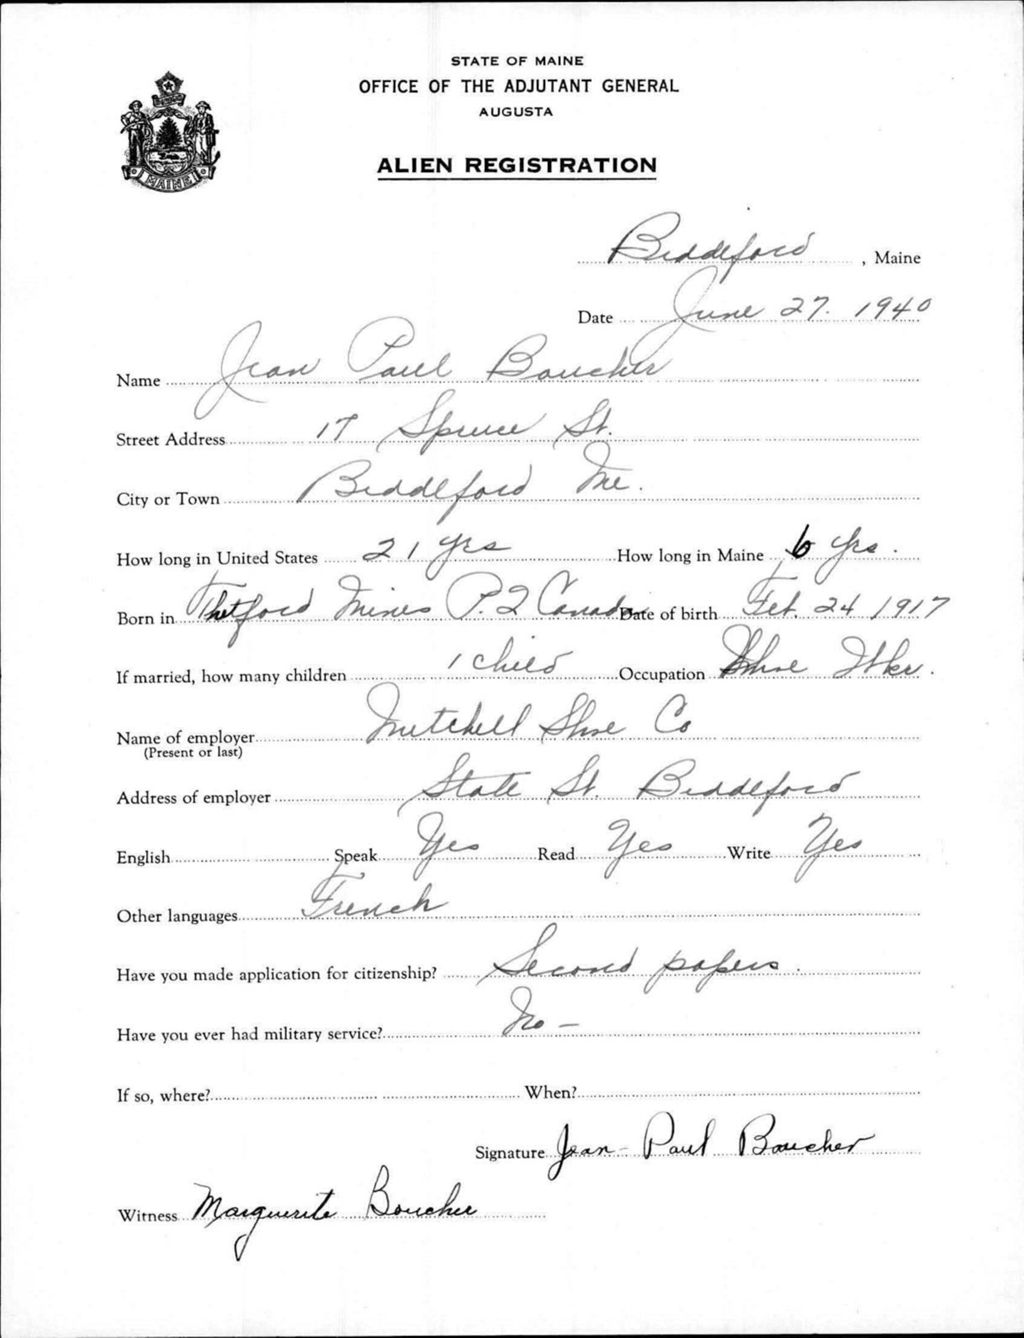 STATE OF MAINE
OFFICE OF THE ADJUTANT GENERAL
AUGUSTA
ALIEN REGISTRATION
MAINE
Biddeford, Maine
Date June 27. 1940
Name Jean Paul Boucher
Street Address 17 Spruce St.
City or Town Biddeford Me.
How long in United States 21 yrs How long in Maine 6 yrs.
Born in Thetford Mines P.Q Canada Date of birth Feb. 24 1917
If married, how many children 1 child Occupation Shoe Wker.
Name of employer Mitchell Shoe Co
(Present or last)
Address of employer State St. Biddeford
English Speak Yes Read Yes Write Yes
Other languages French
Have you made application for citizenship? Second papers.
Have you ever had military service? No –
If so, where? When?
Signature Jean-Paul Boucher
Witness Marguerite Boucher